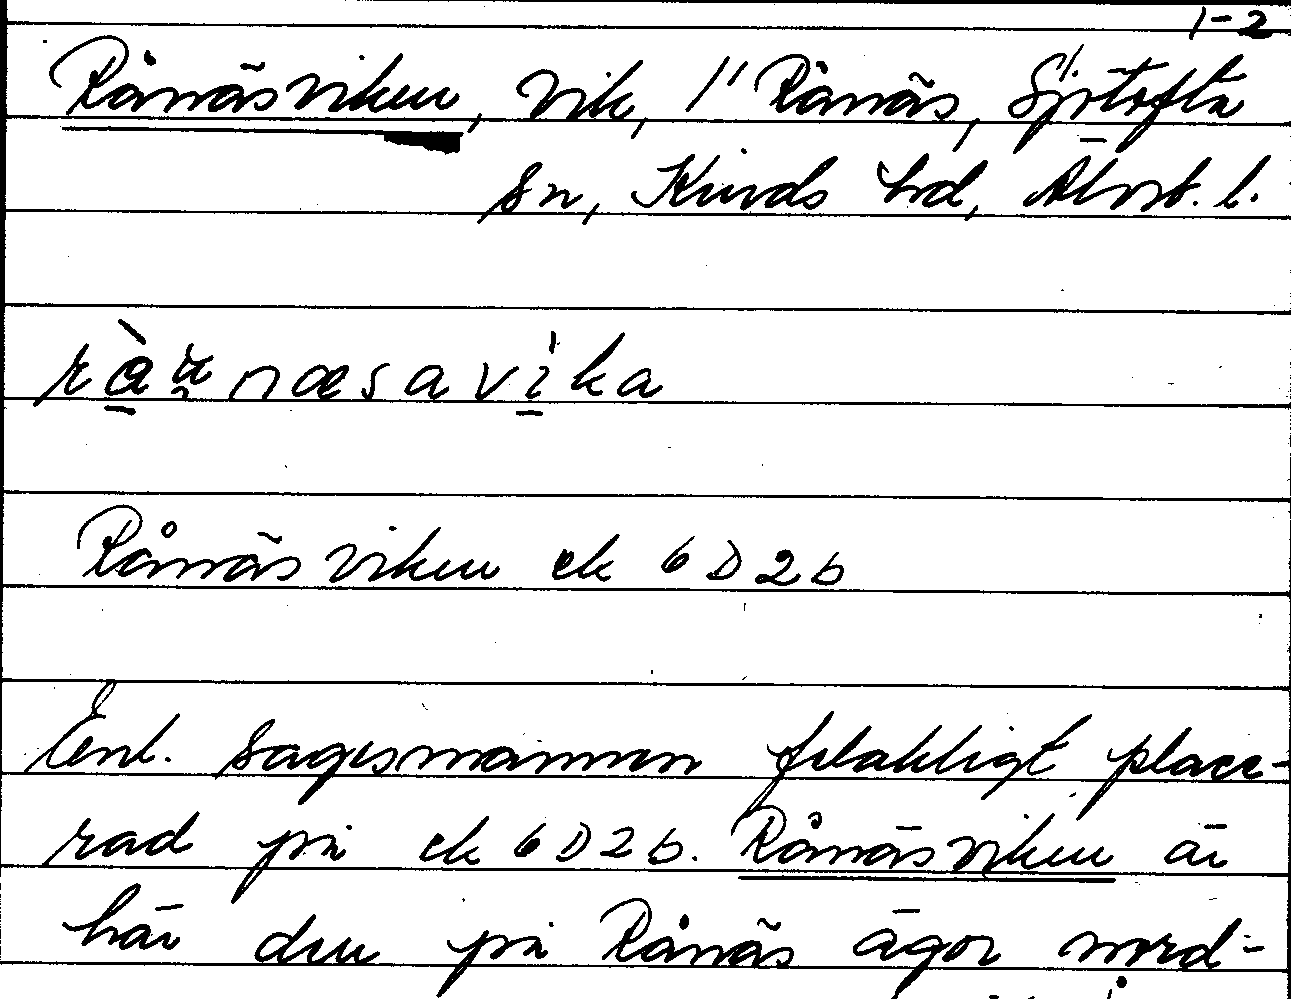 1-2
Rånäsviken, vik, i Rånäs, Sjötofta
sn, Kinds hd, Älvsb. l.
Rånäsviken ek 6D2b
Enl. sagesmannen felaktigt place-
rad på ek 6D2b. Rånäsviken är
här den på Rånäs ägor nord-